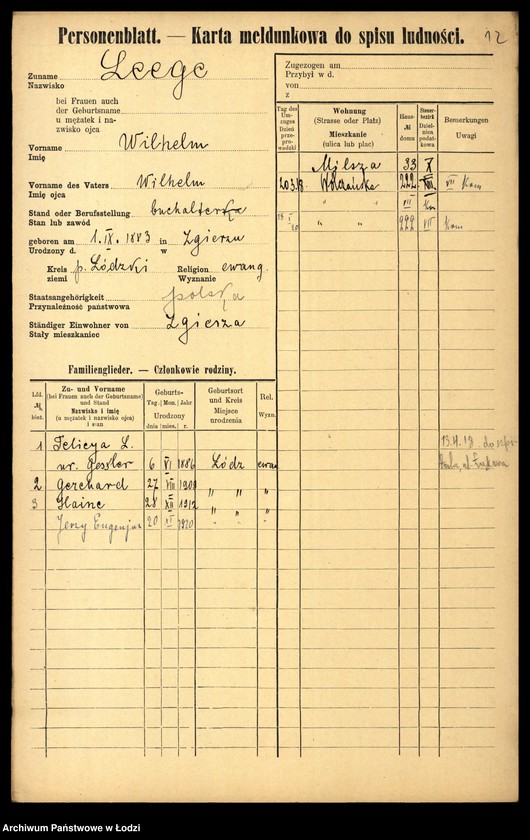 Personenblatt. — Karta meldunkowa do spisu ludności.
12
Zuname Leege
Nazwisko
bei Frauen auch
der Geburtsname
u mężatek i na-
zwisko ojca
Vorname Wilhelm
Imię
Vorname des Vaters Wilhelm
Imię ojca
Stand oder Berufsstellung buchalter
Stan lub zawód
geboren am 1. IX. 1883 in Zgierzu
Urodzony d. w
Kreis p. Łódzki Religion ewang.
ziemi Wyznanie
Staatsangehörigkeit polska
Przynależność państwowa
Ständiger Einwohner von Zgierza
Stały mieszkaniec
Zugezogen am
Przybył w d.
von
z
Tag des Um-zuges Dzień prze-pro-wadzki
Wohnung (Strasse oder Platz) Mieszkanie (ulica lub plac)
Haus- № domu
Steuer-bezirk Dzielnica podatkowa
Bemerkungen Uwagi
Milsza 33 X
20.3.18. Wólczańska 222 VII Kom
" " VII
18 I 20 " " 222 VII Kom
Familienglieder. — Członkowie rodziny.
Lfd. № bież.
Zu- und Vorname (bei Frauen auch der Geburtsname) und Stand Nazwisko i imię (u mężatek i nazwisko ojca) i stan
Geburts- Tag. Mon. Jahr Urodzony dnia mies. r.
Geburtsort und Kreis Miejsce urodzenia
Rel. Wyzn.
1 Felicya L.
ur. Gessler 6 VI 1886 Łódz ewan
2 Gerchard 27 VIII 1909 " " "
3 Haine 28 XII 1912 " " "
Jerzy Eugenjusz 20 VI 1920 " " "
13.4.19 do
Archiwum Państwowe w Łodzi